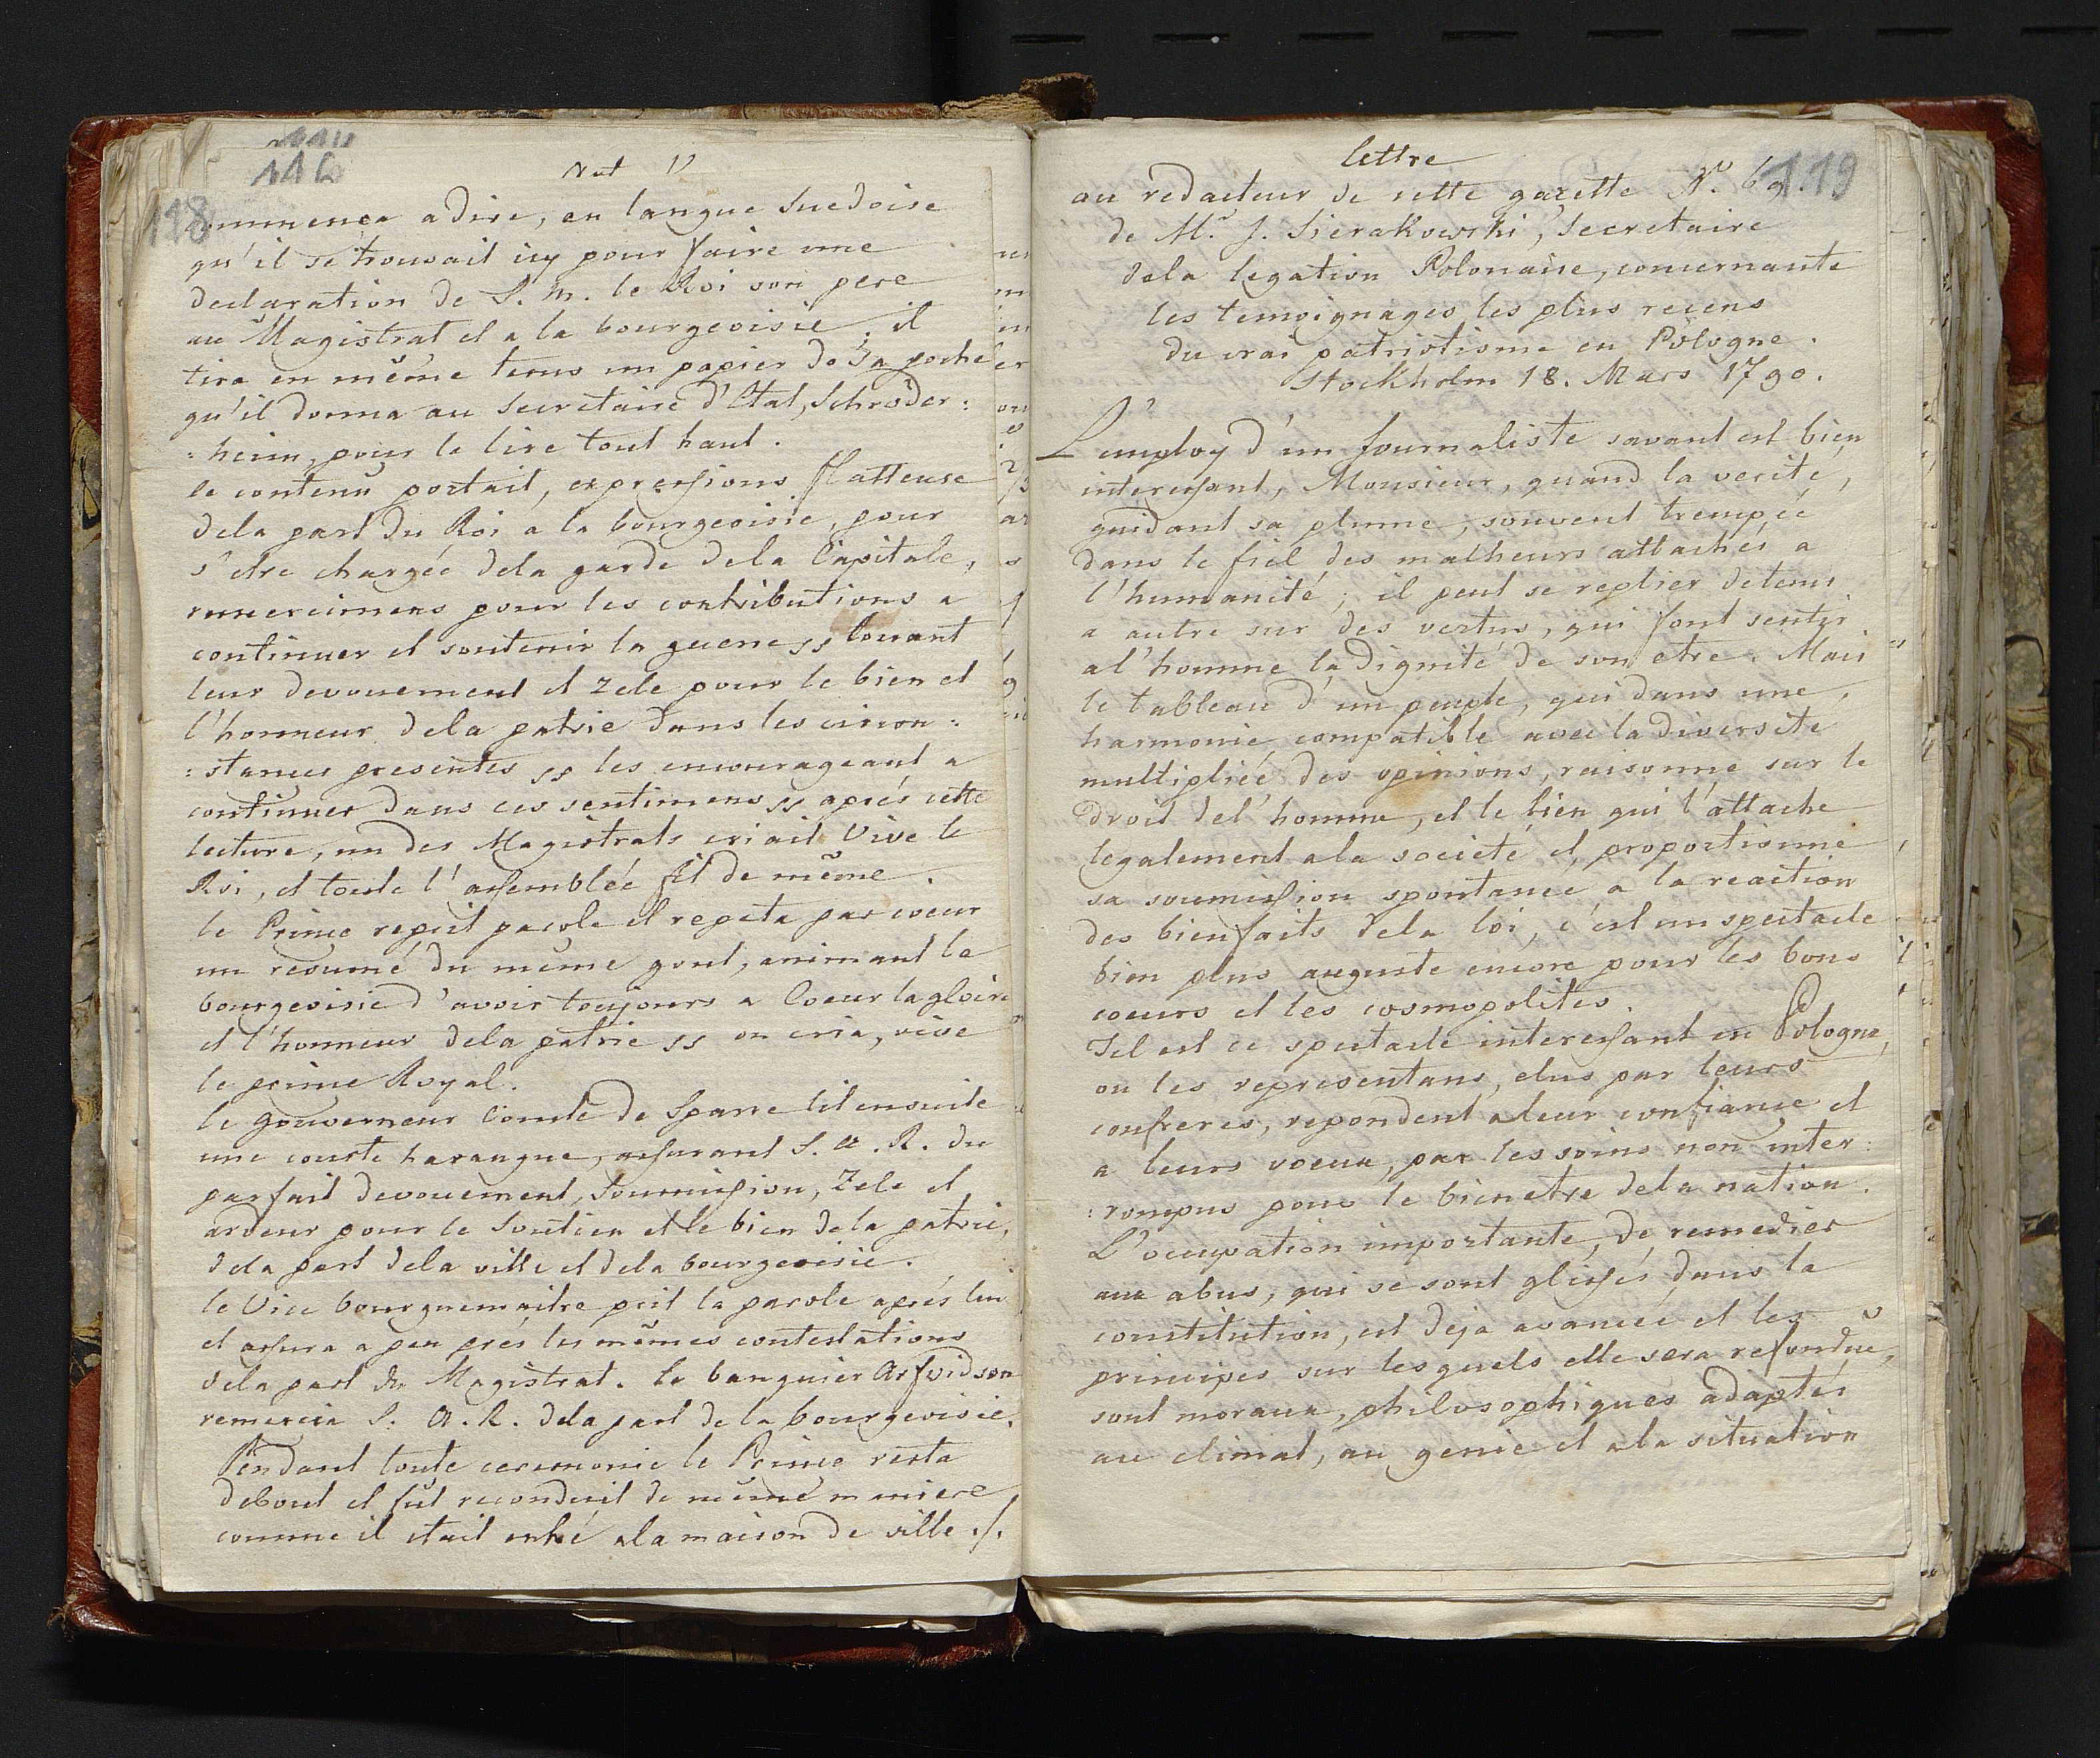 116
118
commença a dire, en langue Suedoise
qu'il se trouvait icy pour faire une
declaration de S. M. le Roi son pere
au Magistrat et a la bourgeoisie. il
tira en même tems un papier de sa poche
qu'il donna au Secretaire d'Etat, Schröder:
:heim, pour le lire tout haut.
le contenu portait, expressions flatteuse
dela part du Roi a la bourgeoisie, pour
s'etre chargée dela garde dela Capitale,
remercimens pour les contributions a
continuer et soutenir la guerre ss louant
leur devouement et zele pour le bien et
l'honneur dela patrie dans les circon:
:stances presentes ss les encourageant a
continuer dans ces sentimens ss aprés cette
lecture, un des Magistrats criait Vive le
Roi, et toute l'assemblée fit de même.
le Prince reprit parole et repeta par coeur
un resumé du meme gout, animant la
bourgeoisie d'avoir toujours a Coeur la gloire
et l'honneur dela patrie ss on cria, vive
le prince Royal.
le gouverneur Comte de Sparre tit ensuite
une courte harangue, assurant S. A. R. du
parfait devouement, Soumission, Zele et
ardeur pour le Soutien et le bien dela patrie,
dela part dela ville et dela bourgeoisie.
le Vice bourguemaitre prit la parole aprés lui
et assura a peu prés les mêmes contestations
dela part du Magistrat. le banquier Arfvidson
remercia S. A. R. dela part de la bourgeoisie.
Pendant toute ceremonie le Prince resta
debout et fut reconduit de meme maniere
comme il etait entré a la maison de ville ./.
119
lettre
au redacteur de cette gazette N.º 69.
de M.r J. Sierakowski, Secretaire
dela legation Polonaise, concernante
les temoignages les plus recens
du vrai patriotisme en Pologne.
Stockholm 18. Mars 1790.
L'employ d'un Journaliste savant est bien
interessant, Monsieur, quand la verité,
guidant sa plume, souvent trempée
dans le fiel des malheurs attachés a
l'humanité; il peut se replier detems
a autre sur des vertus, qui font sentir
al'homme la dignité de son etre. Mais
le tableau d'un peuple, qui dans une
harmonie compatible avec la diversite
multipliée des opinions, raisonne sur le
droit del'homme, et le lien qui l'attache
legalement ala societé et proportionne
sa soumission spontanée a la reaction
des bienfaits dela loi, c'est un spectacle
bien plus auguste encore pour les bons
coeurs et les cosmopolites.
Tel est ce spectacle interessant en Pologne,
ou les representans, elus par leurs
confreres, repondent aleur confiance et
a leurs voeux, par les soins non inter:
:rompus pour le bienetre dela nation.
L'occupation importante, de remedier
aux abus, qui se sont glissés dans la
constitution, est deja avancée et les
principes sur lesquels elle sera refondue,
sont moraux, philosophiques adaptés
au climat, au genie et ala situation